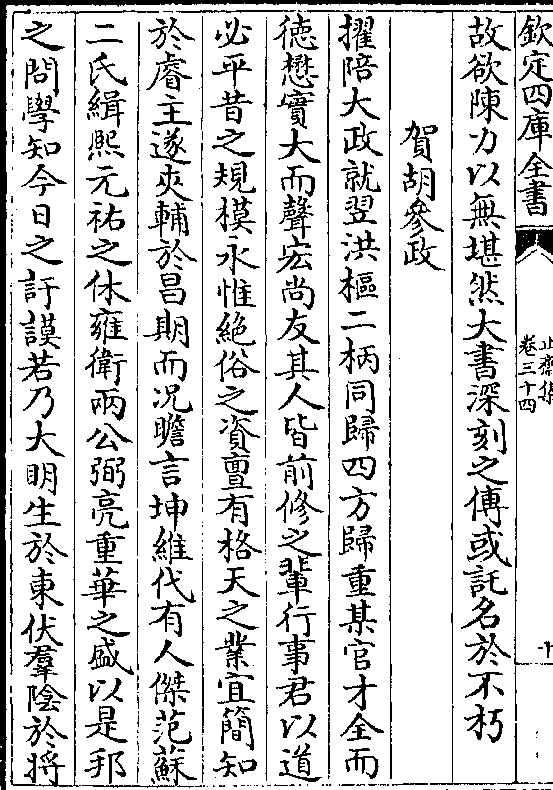 欽定四庫全書
止齋集
卷三十四
十
故欲陳力以無堪然大書深刻之傳或託名於不朽
賀胡參政
擢陪大政就翌洪樞二柄同歸四方歸重某官才全而
徳懋實大而聲宏尚友其人皆前修之輩行事君以道
必平昔之規模永惟絶俗之資亶有格天之業宜簡知
於睿主遂夾輔於昌期而况瞻言坤維代有人傑范蘇
二氏緝熙元祐之休雍衛兩公弼亮重華之盛以是邦
之問學知今日之訏謨若乃大明生於東伏羣陰於將